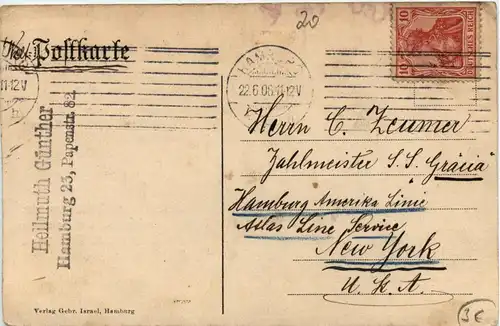 20
Postkarte
10 10
DEUTSCHES REICH
HAMBURG
22.6.06.11-12V
11-12V
Hellmuth Günther
Hamburg 23, Papenstr. 82
Herrn C. Zeumer
Zahlmeister S. S. Gräcia
Hamburg Amerika Linie
Atlas Line Service
New York
U. S. A.
Verlag Gebr. Israel, Hamburg
3€